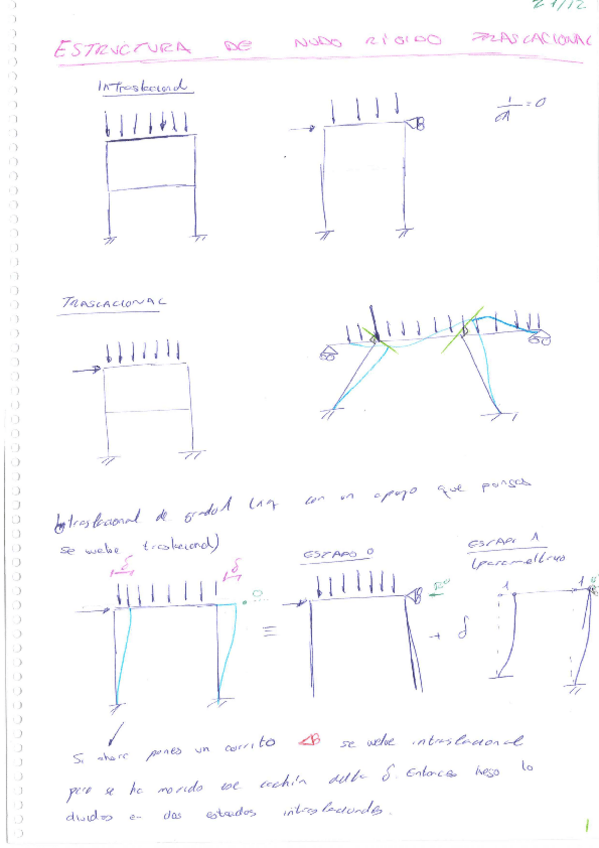 21/12
ESTRUCTURA DE NUDO RIGIDO TRASLACIONAL
INTraslacional
1/∞ = 0
TRASLACIONAL
Intraslacional de grado 1 (ya con un apoyo que pongas
se vuelve traslacional)
δ δ
ESTADO 0
ESTADO 1
(parametrico
R⁰
≡
+ δ
1 1
Si ahora pones un carrito se vuelve intraslacional
pero se ha movido ese cachin delta δ. Entonces luego lo
divides en dos estados intraslacionales.
1